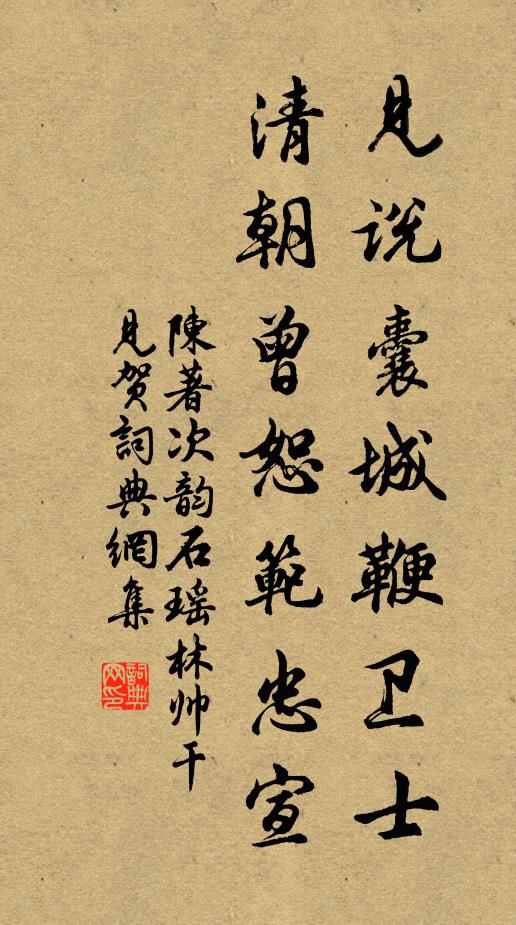 见说囊城鞭卫士
清朝曾恕範忠宣
陳著次韵石瑶林帅干
见贺詞典網集
詞典网印